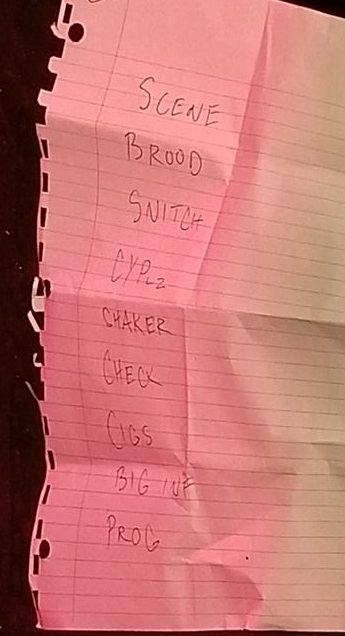 SCENE
BROOD
SNITCH
CYPLZ
SHAKER
CHECK
CIGS
BIG INF
PROG